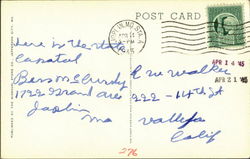 POST CARD
JOPLIN, MO.
APR 14
PM
1945
Here is the state
Capatol
Bess McCurdy
1722 Grand Ave
Joplin
Mo
APR 14 '45
APR 21 '45
C W Walker
222 - 14th St
Vallejo
Calif
276